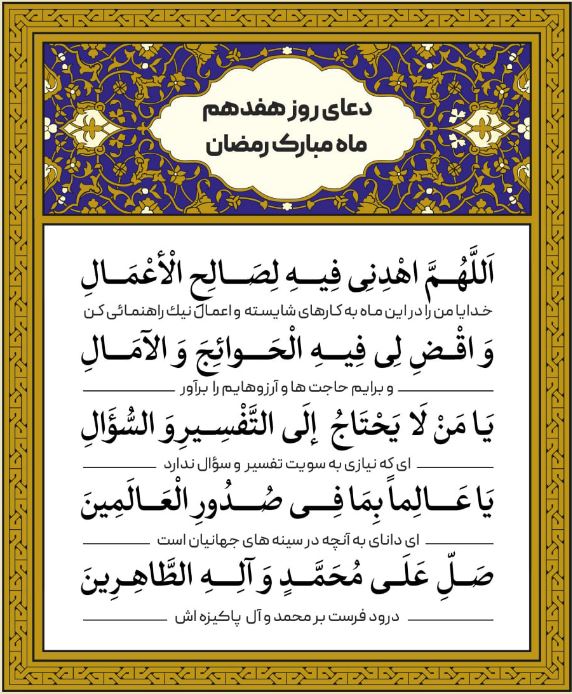 دعای روز هفدهم
ماه مبارک رمضان
اَللَّهُمَّ اهْدِنِی فِیهِ لِصَالِحِ الْأَعْمَالِ
خدایا من را در این ماه به کارهای شایسته و اعمال نیك راهنمائی کن
وَ اقْضِ لِی فِیهِ الْحَوائِجَ وَ الآمَالِ
و برایم حاجت ها و آرزوهایم را برآور
یَا مَنْ لَا یَحْتَاجُ إلَی التَّفْسِیرِ وَ السُّؤَالِ
ای که نیازی به سویت تفسیر و سؤال ندارد
یَا عَالِماً بِمَا فِی صُدُورِ الْعَالَمِینَ
ای دانای به آنچه در سینه های جهانیان است
صَلِّ عَلَی مُحَمَّدٍ وَ آلِهِ الطَّاهِرِینَ
درود فرست بر محمد و آل پاکیزه اش